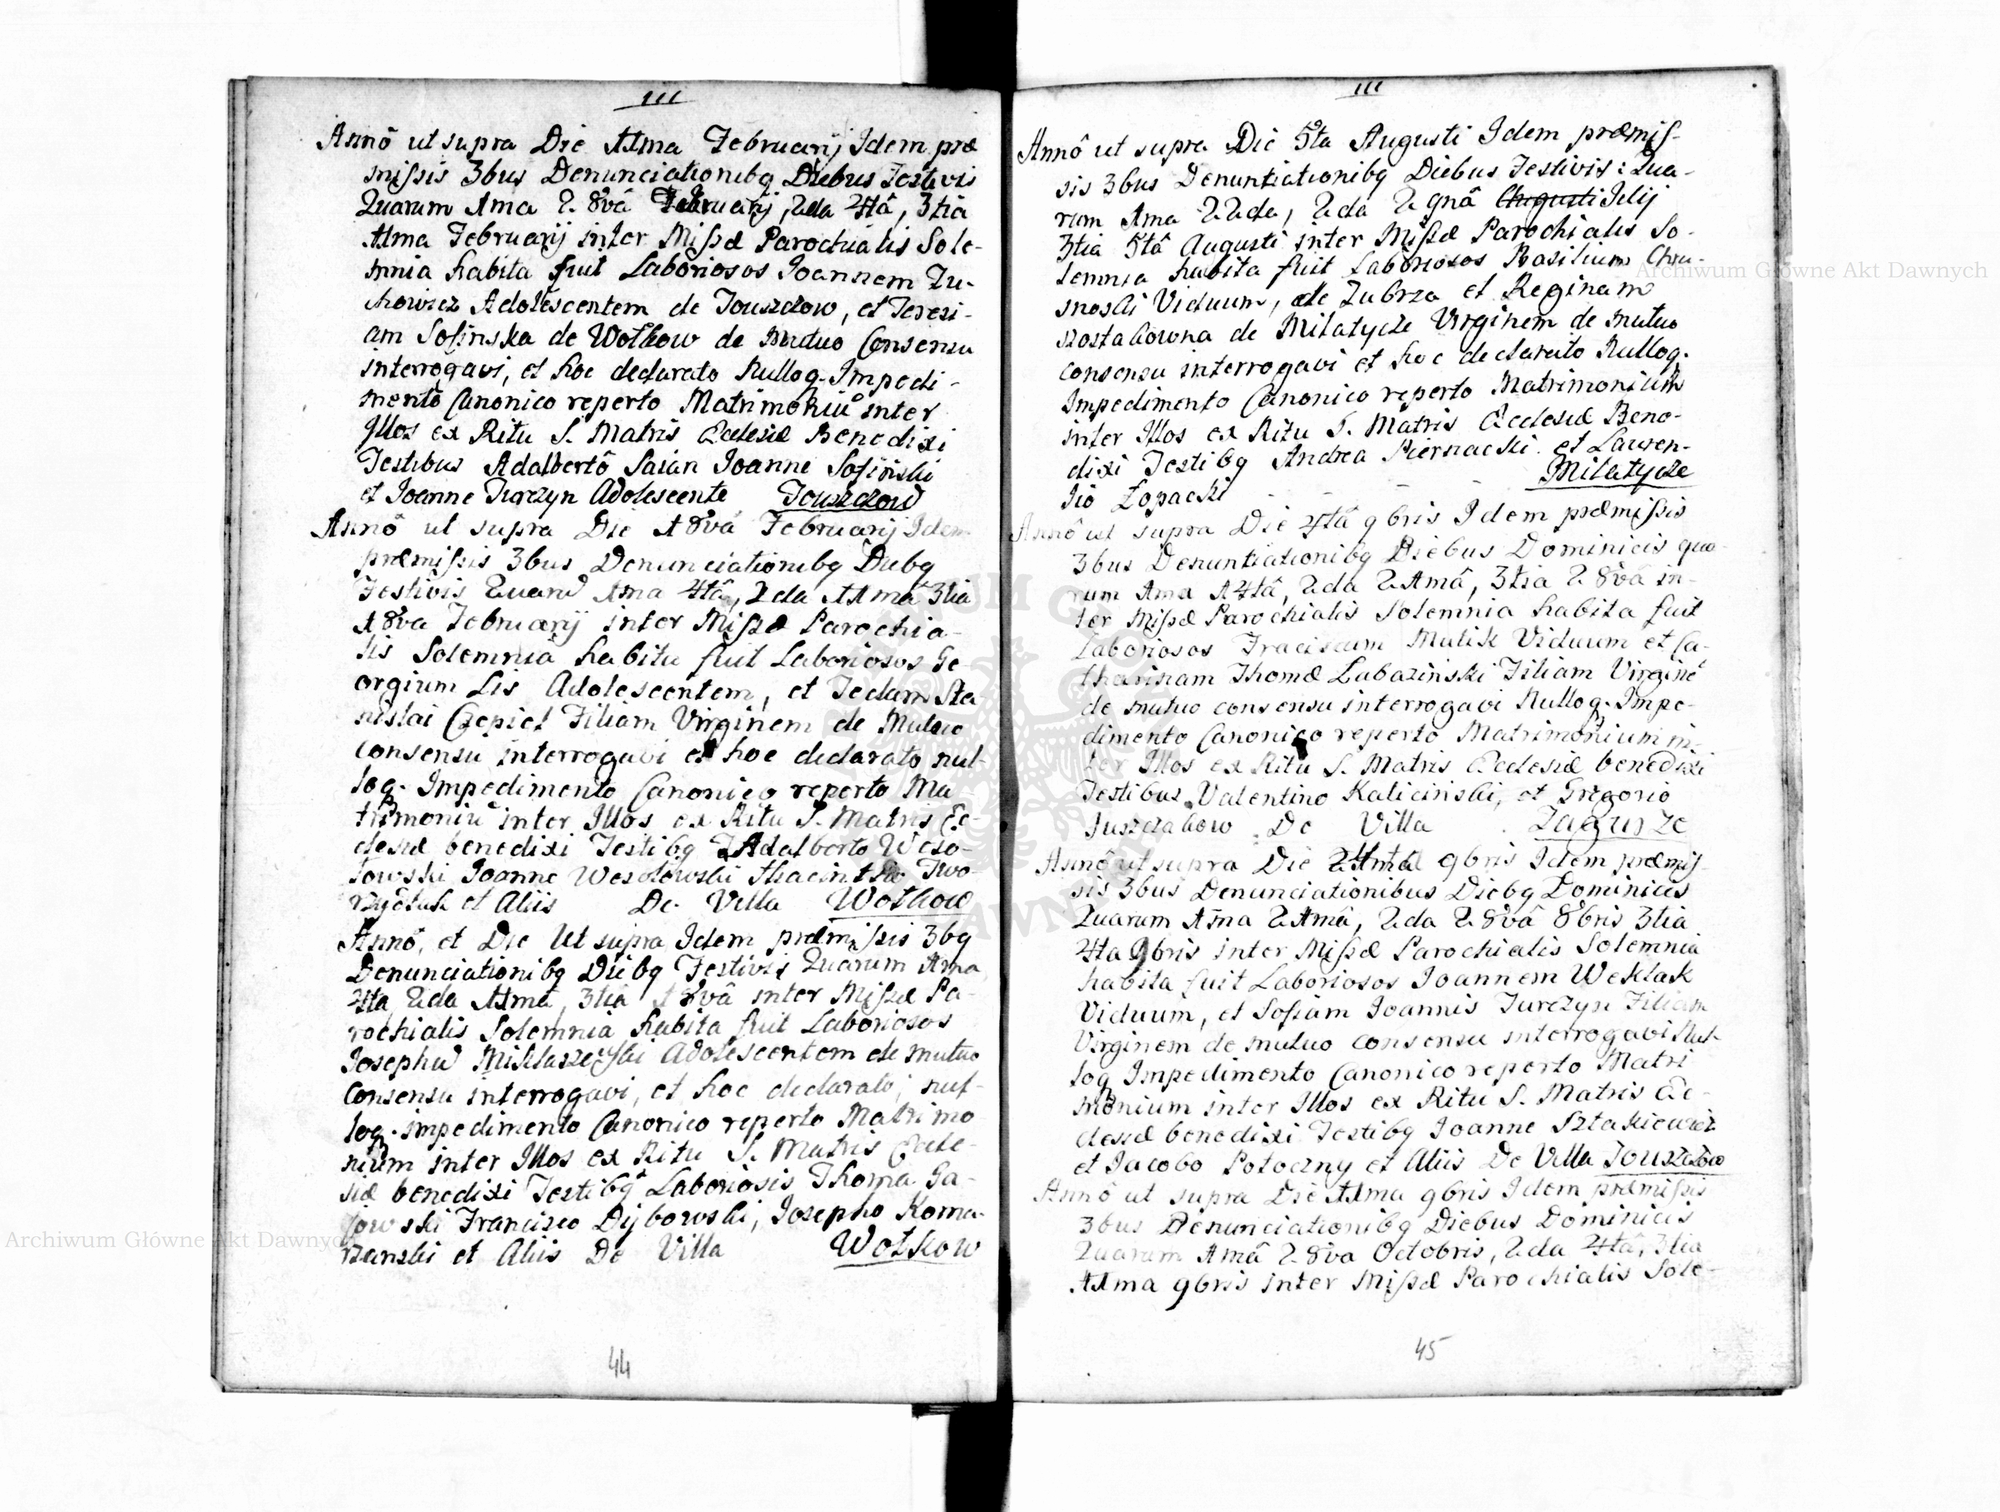 111
Annô ut supra Die 11ma Februarij Idem præ
missis 3bus Denunciationibq Diebus Festivis
Quarum 1ma 28vâ Februarij, 2da 4tâ, 3tia
11ma Februarij inter Missæ Parochialis Sole-
mnia habita fuit Laboriosos Joannem Zu-
chowicz Adolescentem de Touszczow, et Teresi-
am Sosinska de Wolkow de Mutuo Consensu
interrogavi, et hoc declarato Nulloq. Impedi-
mentô Canonico reperto Matrimoniu inter
Illos ex Ritu S. Matris Ecclesiæ Benedixi
Testibus Adalbertô Saian Joanne Sosinski
et Joanne Jurczyn Adolescente Touszczow
Annô ut supra Die 18vâ Februarij Idem
præmissis 3bus Denunciationibq Diebq
Festivis Quaru 1ma 4tâ, 2da 11ma 3tia
18va Februarij inter Missæ Parochia-
lis Solemnia habita fuit Laboriosos Ge-
orgium Lis Adolescentem, et Teclam Sta-
nislai Czepiel Filiam Virginem de Mutuo
Consensu interrogavi et hoc declarato nul-
loq. Impedimento Canonico reperto Ma
trimoniu inter Illos ex Ritu S. Matris Ec-
clesiæ benedixi Testibq Adalberto Weso-
łowski Joanne Wesołowski Hiacintho Two
De Villa Wołkow
et Aliis
Annô, et Die Ut supra Idem præmissis 3bq
Denunciationibq Diebq Festivis Quarum 1ma
4ta 2da 11ma, 3tia 18vâ inter Missæ Pa-
rochialis Solemnia habita fuit Laboriosos
Josephu Adolescentem de mutuo
Consensu interrogavi, et hoc declarato, nul-
loq. impedimento Canonico reperto Matrimo
nium inter Illos ex Ritu S. Matris Eccle-
siæ benedixi Testibq Laboriosis Thoma Ga-
jowski Francisco Dybowski, Josepho Koma-
rzanski et Aliis De Villa Wołkow
44
111
Annô ut supra Die 5ta Augusti Idem præmis-
sis 3bus Denuntiationibq Diebus Festivis: Qua-
rum 1ma 22da, 2da 29nâ Augusti Julij
3tia 5tâ Augusti inter Missæ Parochialis So-
lemnia habita fuit Laboriosos Basilium Chru-
snoski Viduum, de Zubrza et Reginam
Szostakowna de Milatycze Virginem de mutuo
consensu interrogavi et hoc declarato Nulloq.
Impedimento Canonico reperto Matrimonium
inter Illos ex Ritu S. Matris Ecclesiæ Bene-
dixi Testibq Andrea Piernacki et Lauren-
tio Łopacki - - - Milatycze
Annô ut supra Die 4tâ 9bris Idem præmissis
3bus Denuntiationibq Diebus Dominicis qua-
rum 1ma 14tâ, 2da 21mâ, 3tia 28vâ in-
ter Missæ Parochialis Solemnia habita fuit
Laboriosos Franciscum Mulik Viduum et Ca-
tharinam Thomæ Lubazinski Filiam Virgine
de mutuo consensu interrogavi Nulloq. Impe-
dimento Canonico reperto Matrimonium in-
ter Illos ex Ritu S. Matris Ecclesiæ benedixi
Testibus Valentino Kalicinski, et Gregorio
Juszczakow De Villa Zagurze
Annô ut supra Die 9bris Idem præmis-
sis 3bus Denunciationibus Diebq Dominicis
Quarum 1ma 21mâ, 2da 28vâ 8bris 3tia
4ta 9bris inter Missæ Parochialis Solemnia
habita fuit Laboriosos Joannem Weklak
Viduum, et Sofiam Joannis Jurczyn Filiam
Virginem de mutuo consensu interrogavi Nul-
loq Impedimento Canonico reperto Matri
monium inter Illos ex Ritu S. Matris Ec-
clesiæ benedixi Testibq Joanne Sztakiewicz
et Jacobo Potoczny et Aliis De Villa Touszczow
Annô ut supra Die 11ma 9bris Idem præmissis
3bus Denunciationibq Diebus Dominicis
Quarum 1mâ 28va Octobris, 2da 4tâ, 3tia
11ma 9bris inter Missæ Parochialis Sole-
45
Archiwum Główne Akt Dawnych
Archiwum Główne Akt Dawnych